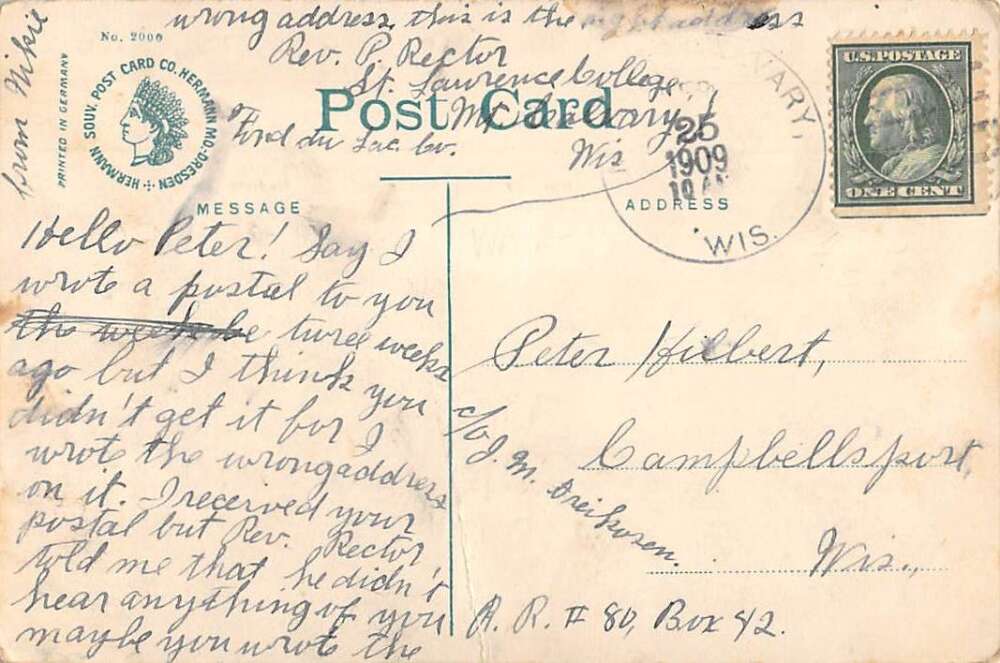 No. 2000
PRINTED IN GERMANY
HERMANN SOUV. POST CARD CO. HERMANN MO.-DRESDEN
Post Card
MESSAGE
Hello Peter! Say I
wrote a postal to you
the week be twree weeks
ago but I think you
didn't get it for I
wrote the wrong address
on it. I received your
postal but Rev. Rector,
told me that he didn't
hear anything of you
maybe you wrote the
wrong address this is the right address
Rev. P. Rector
St. Lawrence College,
Mt. Calvary,
Fond du Lac Co.
Wis
from Mikie
ADDRESS
VARY,
25
1909
WIS.
U.S. POSTAGE
ONE CENT
Peter Hilbert,
c/o J. M. Dreikosen.
Campbellsport,
Wis.,
R. R. # 80, Box 42.